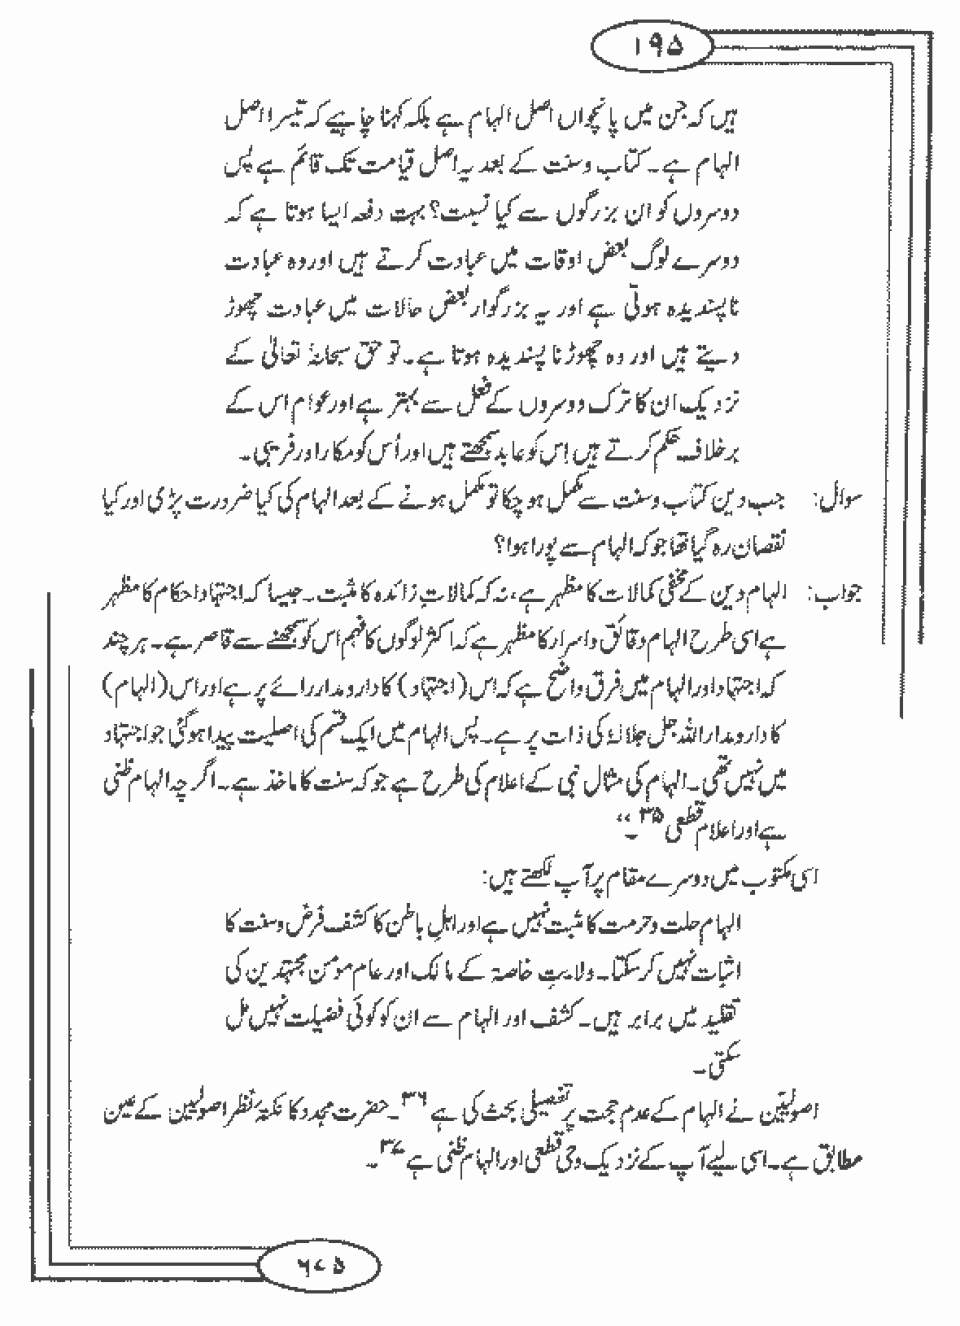 ۱۹۵
ہیں کہ جن میں پانچواں اصل الہام ہے بلکہ کہنا چاہیے کہ تیسرا اصل
الہام ہے۔ کتاب و سنت کے بعد یہ اصل قیامت تک قائم ہے پس
دوسروں کو ان بزرگوں سے کیا نسبت؟ بہت دفعہ ایسا ہوتا ہے کہ
دوسرے لوگ بعض اوقات میں عبادت کرتے ہیں اور وہ عبادت
ناپسندیدہ ہوتی ہے اور یہ بزرگوار بعض حالات میں عبادت چھوڑ
دیتے ہیں اور وہ چھوڑنا پسندیدہ ہوتا ہے۔ تو حق سبحانہٗ تعالیٰ کے
نزدیک ان کا ترک دوسروں کے فعل سے بہتر ہے اور عوام اس کے
برخلاف حکم کرتے ہیں اِس کو عابد سمجھتے ہیں اور اُس کو مکار اور فریبی۔
سوال: جب دین کتاب و سنت سے مکمل ہو چکا تو مکمل ہونے کے بعد الہام کی کیا ضرورت پڑی اور کیا
نقصان رہ گیا تھا جو کہ الہام سے پورا ہوا؟
جواب: الہام دین کے مخفی کمالات کا مظہر ہے، نہ کہ کمالاتِ زائدہ کا مثبت۔ جیسا کہ اجتہاد احکام کا مظہر
ہے اسی طرح الہام دقائق و اسرار کا مظہر ہے کہ اکثر لوگوں کا فہم اس کو سمجھنے سے قاصر ہے۔ ہر چند
کہ اجتہاد اور الہام میں فرق واضح ہے کہ اس (اجتہاد) کا دارومدار رائے پر ہے اور اس (الہام)
کا دارومدار اللہ جل جلالہٗ کی ذات پر ہے۔ پس الہام میں ایک قسم کی اصلیت پیدا ہو گئی جو اجتہاد
میں نہیں تھی۔ الہام کی مثال نبی کے اعلام کی طرح ہے جو کہ سنت کا ماخذ ہے۔ اگرچہ الہام ظنی
ہے اور اعلام قطعی ۳۵۔“
اسی مکتوب میں دوسرے مقام پر آپ لکھتے ہیں:
الہام حلت و حرمت کا مثبت نہیں ہے اور اہلِ باطن کا کشف فرض و سنت کا
اثبات نہیں کر سکتا۔ ولایتِ خاصہ کے مالک اور عام مومن مجتہدین کی
تقلید میں برابر ہیں۔ کشف اور الہام سے ان کو کوئی فضیلت نہیں مل
سکتی۔
اصولیین نے الہام کے عدم حجت پر تفصیلی بحث کی ہے ۳۶۔ حضرت مجدد کا نکتۂ نظر اصولیین کے عین
مطابق ہے۔ اسی لیے آپ کے نزدیک وحی قطعی اور الہام ظنی ہے ۳۷۔
۶۷۵